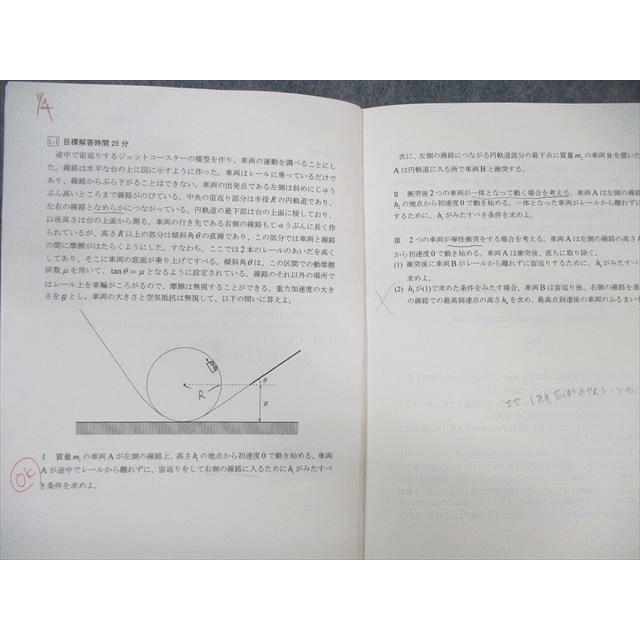 1-1 目標解答時間 25 分
途中で宙返りするジェットコースターの模型を作り，車両の運動を調べることにし
た。線路は水平な台の上に図に示すように作った。車両はレールに乗っているだけで
あり，線路からぶら下がることはできない。車両の出発点である左側は斜めにじゅう
ぶん高いところまで線路がのびている。中央の宙返り部分は半径Rの円軌道であり，
左右の線路となめらかにつながっている。円軌道の最下部は台の上面に接しており，
以後高さは台の上面から測る。車両の行き先である右側の線路もじゅうぶんに長く作
られているが，高さR以上の部分は傾斜角θの直線であり，この部分では車両と線路
の間に摩擦がはたらくようにした。すなわち，ここでは2本のレールのあいだを高く
してあり，そこに車両の底面が乗り上げてすべる。傾斜角θは，この区間での動摩擦
係数μを用いて，tanθ=μとなるように設定されている。線路のそれ以外の場所で
はレール上を車輪がころがるので，摩擦は無視することができる。重力加速度の大き
さをgとし，車両の大きさと空気抵抗は無視して，以下の問いに答えよ。
R
θ
R
I 質量m₁の車両Aが左側の線路上，高さh₁の地点から初速度0で動き始める。車両
OK
Aが途中でレールから離れずに，宙返りをして右側の線路に入るためにh₁がみたすべ
き条件を求めよ。
次に，左側の線路につながる円軌道部分の最下点に質量m₂の車両Bを置いた
Aは円軌道に入る所で車両Bと衝突する。
II 衝突後2つの車両が一体となって動く場合を考える。車両Aは左側の線路
h₁の地点から初速度0で動き始める。一体となった車両がレールから離れずに
するために，h₁がみたすべき条件を求めよ。
III 2つの車両が弾性衝突をする場合を考える。車両Aは左側の線路の高さh
から初速度0で動き始める。車両Aは衝突後，直ちに取り除く。
(1) 衝突後に車両Bがレールから離れずに宙返りするために，h₁がみたすべき
求めよ。
(2) h₁が(1)で求めた条件をみたす場合，車両Bは宙返り後，右側の線路を進
の線路での最高到達点の高さhₐを求め，最高点到達後の車両のふるまいを